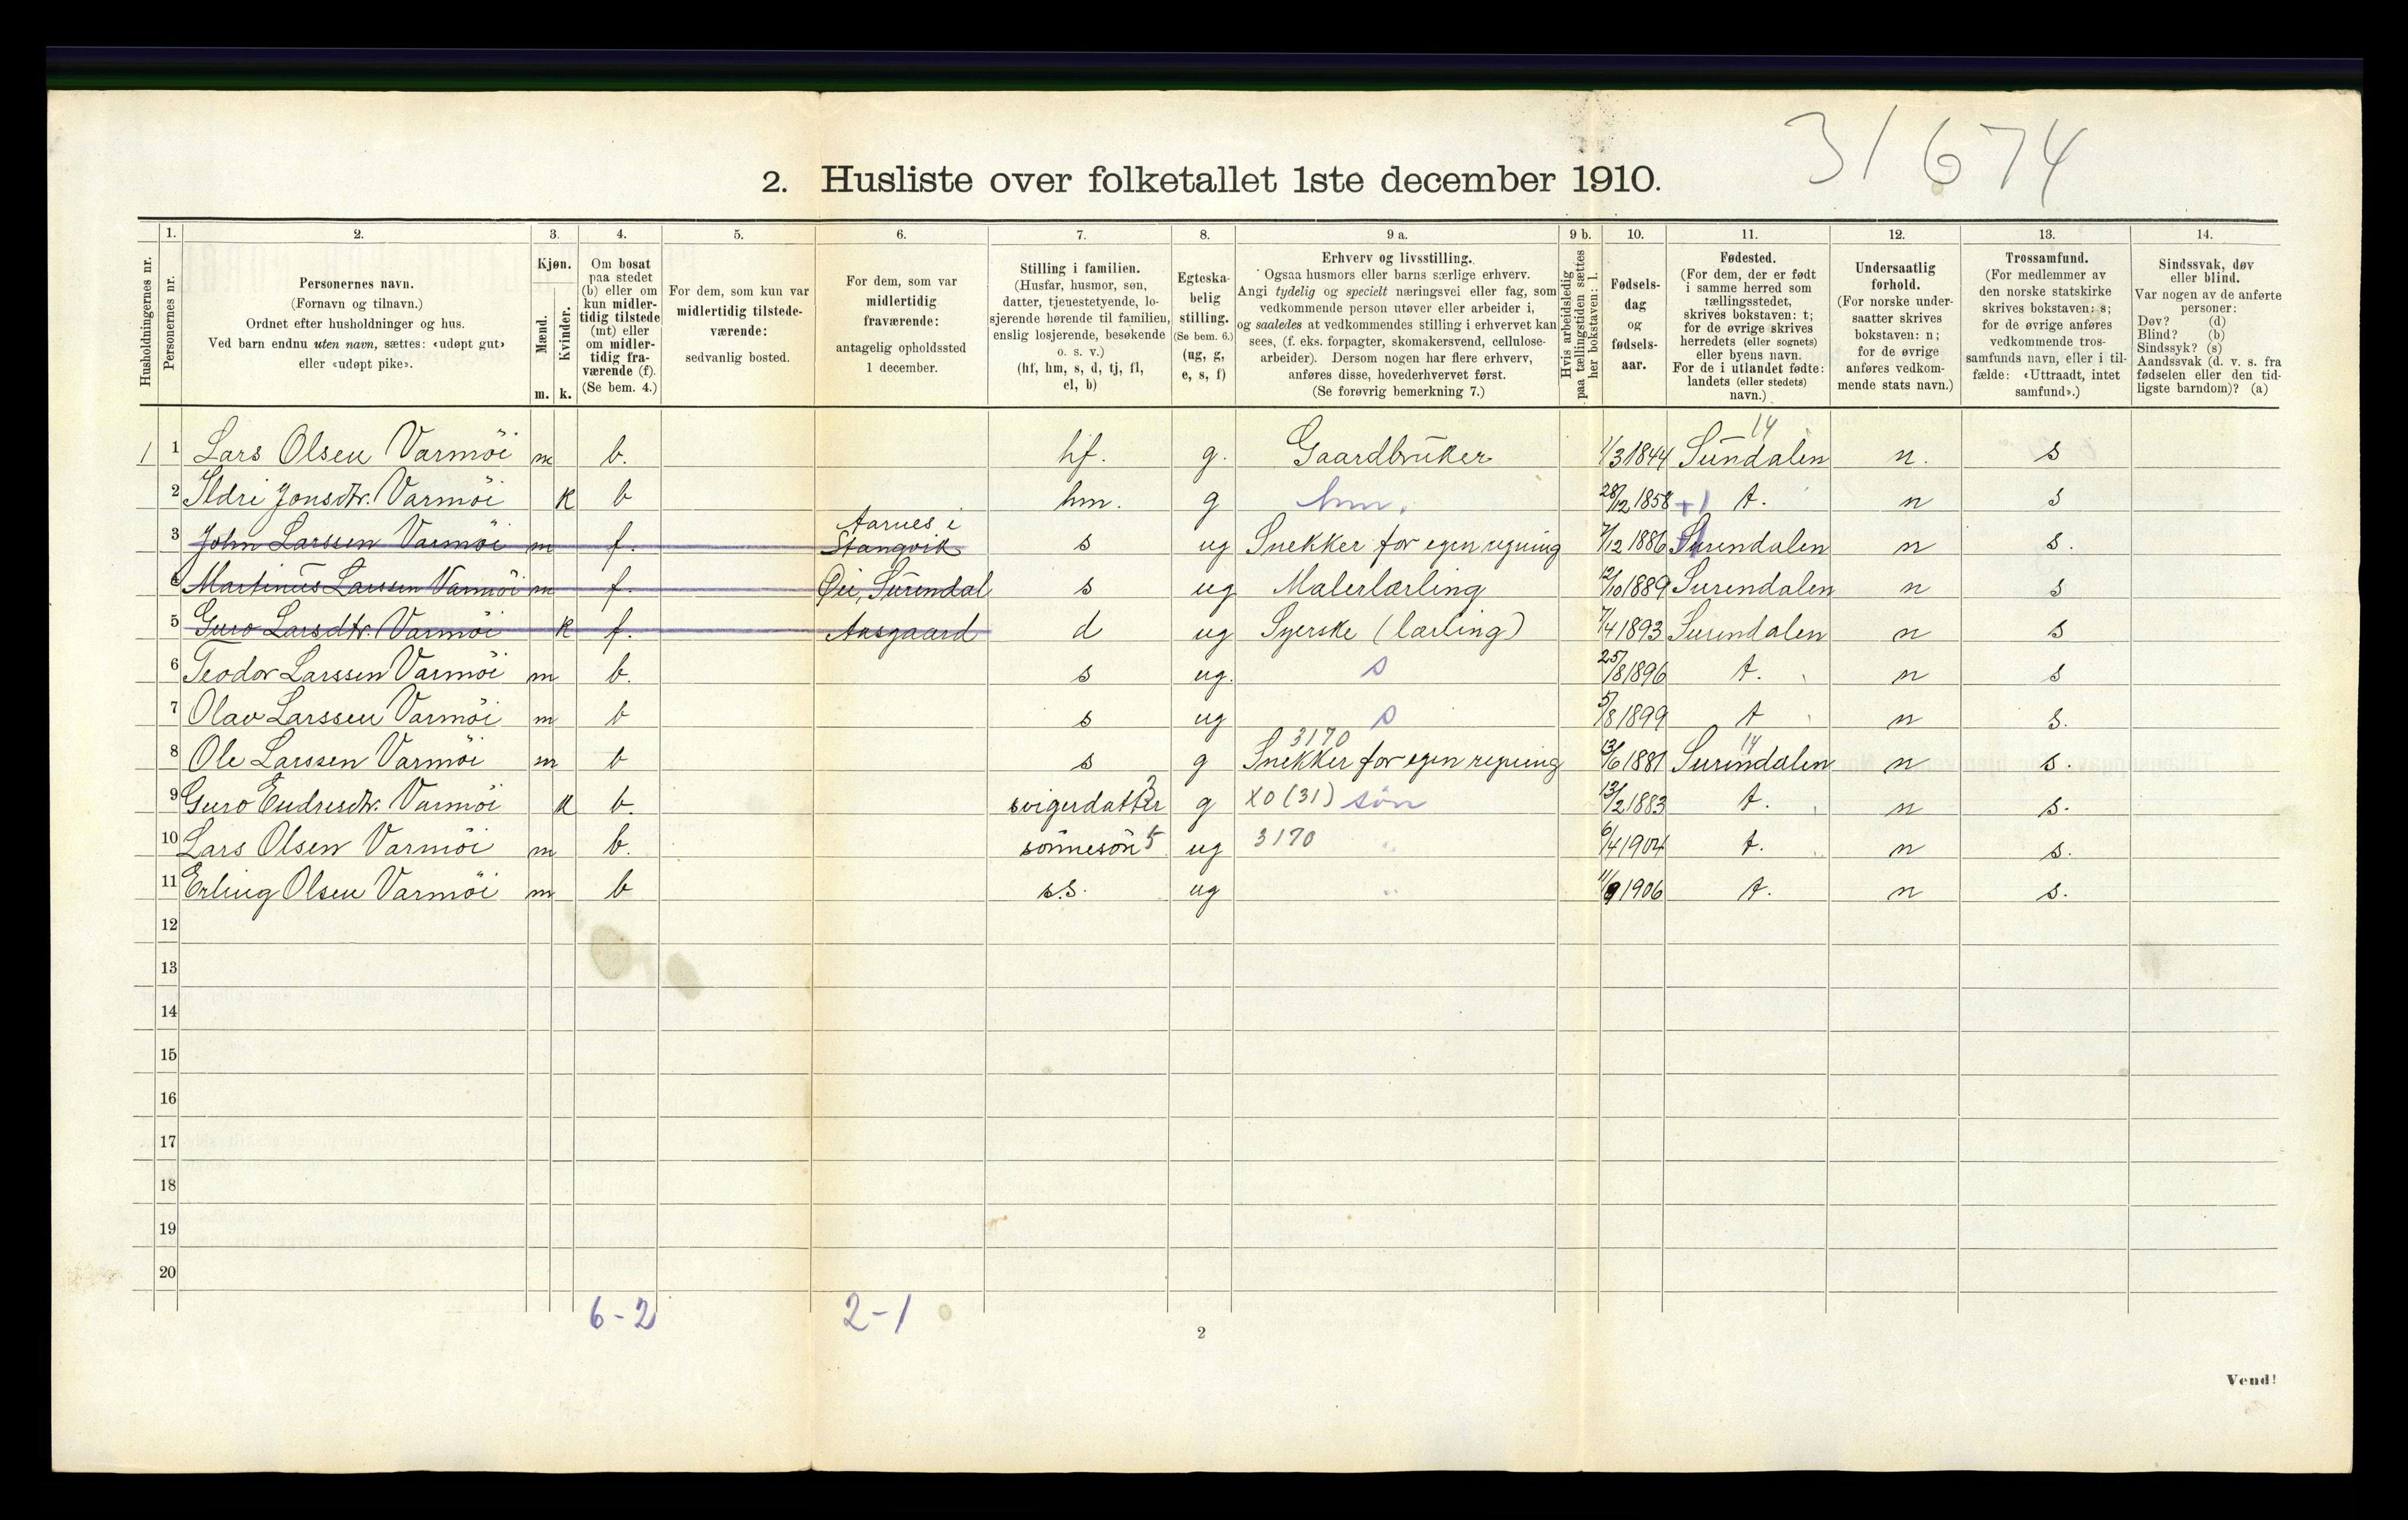 31674
2. Husliste over folketallet 1ste december 1910.
Husholdningernes nr.
1. Personernes nr.
2. Personernes navn.
(Fornavn og tilnavn.)
Ordnet efter husholdninger og hus.
Ved barn endnu uten navn, sættes: «udøpt gut»
eller «udøpt pike».
3. Kjøn.
Mænd. Kvinder.
m. k.
4. Om bosat
paa stedet
(b) eller om
kun midler-
tidig tilstede
(mt) eller
om midler-
tidig fra-
værende (f).
(Se bem. 4.)
5. For dem, som kun var
midlertidig tilstede-
værende:
sedvanlig bosted.
6. For dem, som var
midlertidig
fraværende:
antagelig opholdssted
1 december.
7. Stilling i familien.
(Husfar, husmor, søn,
datter, tjenestetyende, lo-
sjerende hørende til familien,
enslig losjerende, besøkende
o. s. v.)
(hf, hm, s, d, tj, fl,
el, b)
8. Egteska-
belig
stilling.
(Se bem. 6.)
(ug, g,
e, s, f)
9 a. Erhverv og livsstilling.
Ogsaa husmors eller barns særlige erhverv.
Angi tydelig og specielt næringsvei eller fag, som
vedkommende person utøver eller arbeider i,
og saaledes at vedkommendes stilling i erhvervet kan
sees, (f. eks. forpagter, skomakersvend, cellulose-
arbeider). Dersom nogen har flere erhverv,
anføres disse, hovederhvervet først.
(Se forøvrig bemerkning 7.)
9 b. Hvis arbeidsledig
paa tællingstiden sættes
her bokstaven: l.
10. Fødsels-
dag
og
fødsels-
aar.
11. Fødested.
(For dem, der er født
i samme herred som
tællingsstedet,
skrives bokstaven: t;
for de øvrige skrives
herredets (eller sognets)
eller byens navn.
For de i utlandet fødte:
landets (eller stedets)
navn.)
12. Undersaatlig
forhold.
(For norske under-
saatter skrives
bokstaven: n;
for de øvrige
anføres vedkom-
mende stats navn.)
13. Trossamfund.
(For medlemmer av
den norske statskirke
skrives bokstaven: s;
for de øvrige anføres
vedkommende tros-
samfunds navn, eller i til-
fælde: «Uttraadt, intet
samfund».)
14. Sindssvak, døv
eller blind.
Var nogen av de anførte
personer:
Døv? (d)
Blind? (b)
Sindssyk? (s)
Aandssvak (d. v. s. fra
fødselen eller den tid-
ligste barndom)? (a)
14
1 1 Lars Olsen Varmöi m b. hf. g. Gaardbruker 1/3 1844 Sundalen n. s
2 Ildri Jonsdtr. Varmöi k b hm. g hm. 28/12 1858 +1 t. n s
Aarnes i
3 John Larssen Varmöi m f. Stangvik s ug Snekker for egen regning 7/12 1886 Surendalen n s.
4 Martinus Larssen Varmöi m f. Øie, Surendal s ug Malerlærling 12/10 1889 Surendalen n s
5 Guro Larsdtr. Varmöi k f. Aasgaard d ug Syerske (lærling) 7/4 1893 Surendalen n s
6 Teodor Larssen Varmöi m b. s ug. s 25/8 1896 t. n s
7 Olav Larssen Varmöi m b s ug s 5/8 1899 t n s.
3170 14
8 Ole Larssen Varmöi m b s g Snekker for egen regning 13/6 1881 Surendalen n s.
9 Guro Endresdtr. Varmöi k b. svigerdatter g XO (31) sön 13/2 1883 t. n s.
10 Lars Olsen Varmöi m b. sönnesön 5 ug 3170 " 6/4 1904 t. n s.
11 Erling Olsen Varmöi m b s.s. ug " 11/9 1906 t. n s.
12
13
14
15
16
17
18
19
20
6-2 2-1
2
Vend!